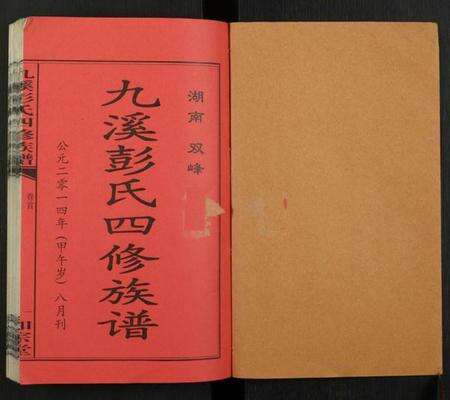 湖南 双峰
九溪彭氏四修族谱
公元二零一四年（甲午岁）八月刊
九溪彭氏四修族谱
卷首